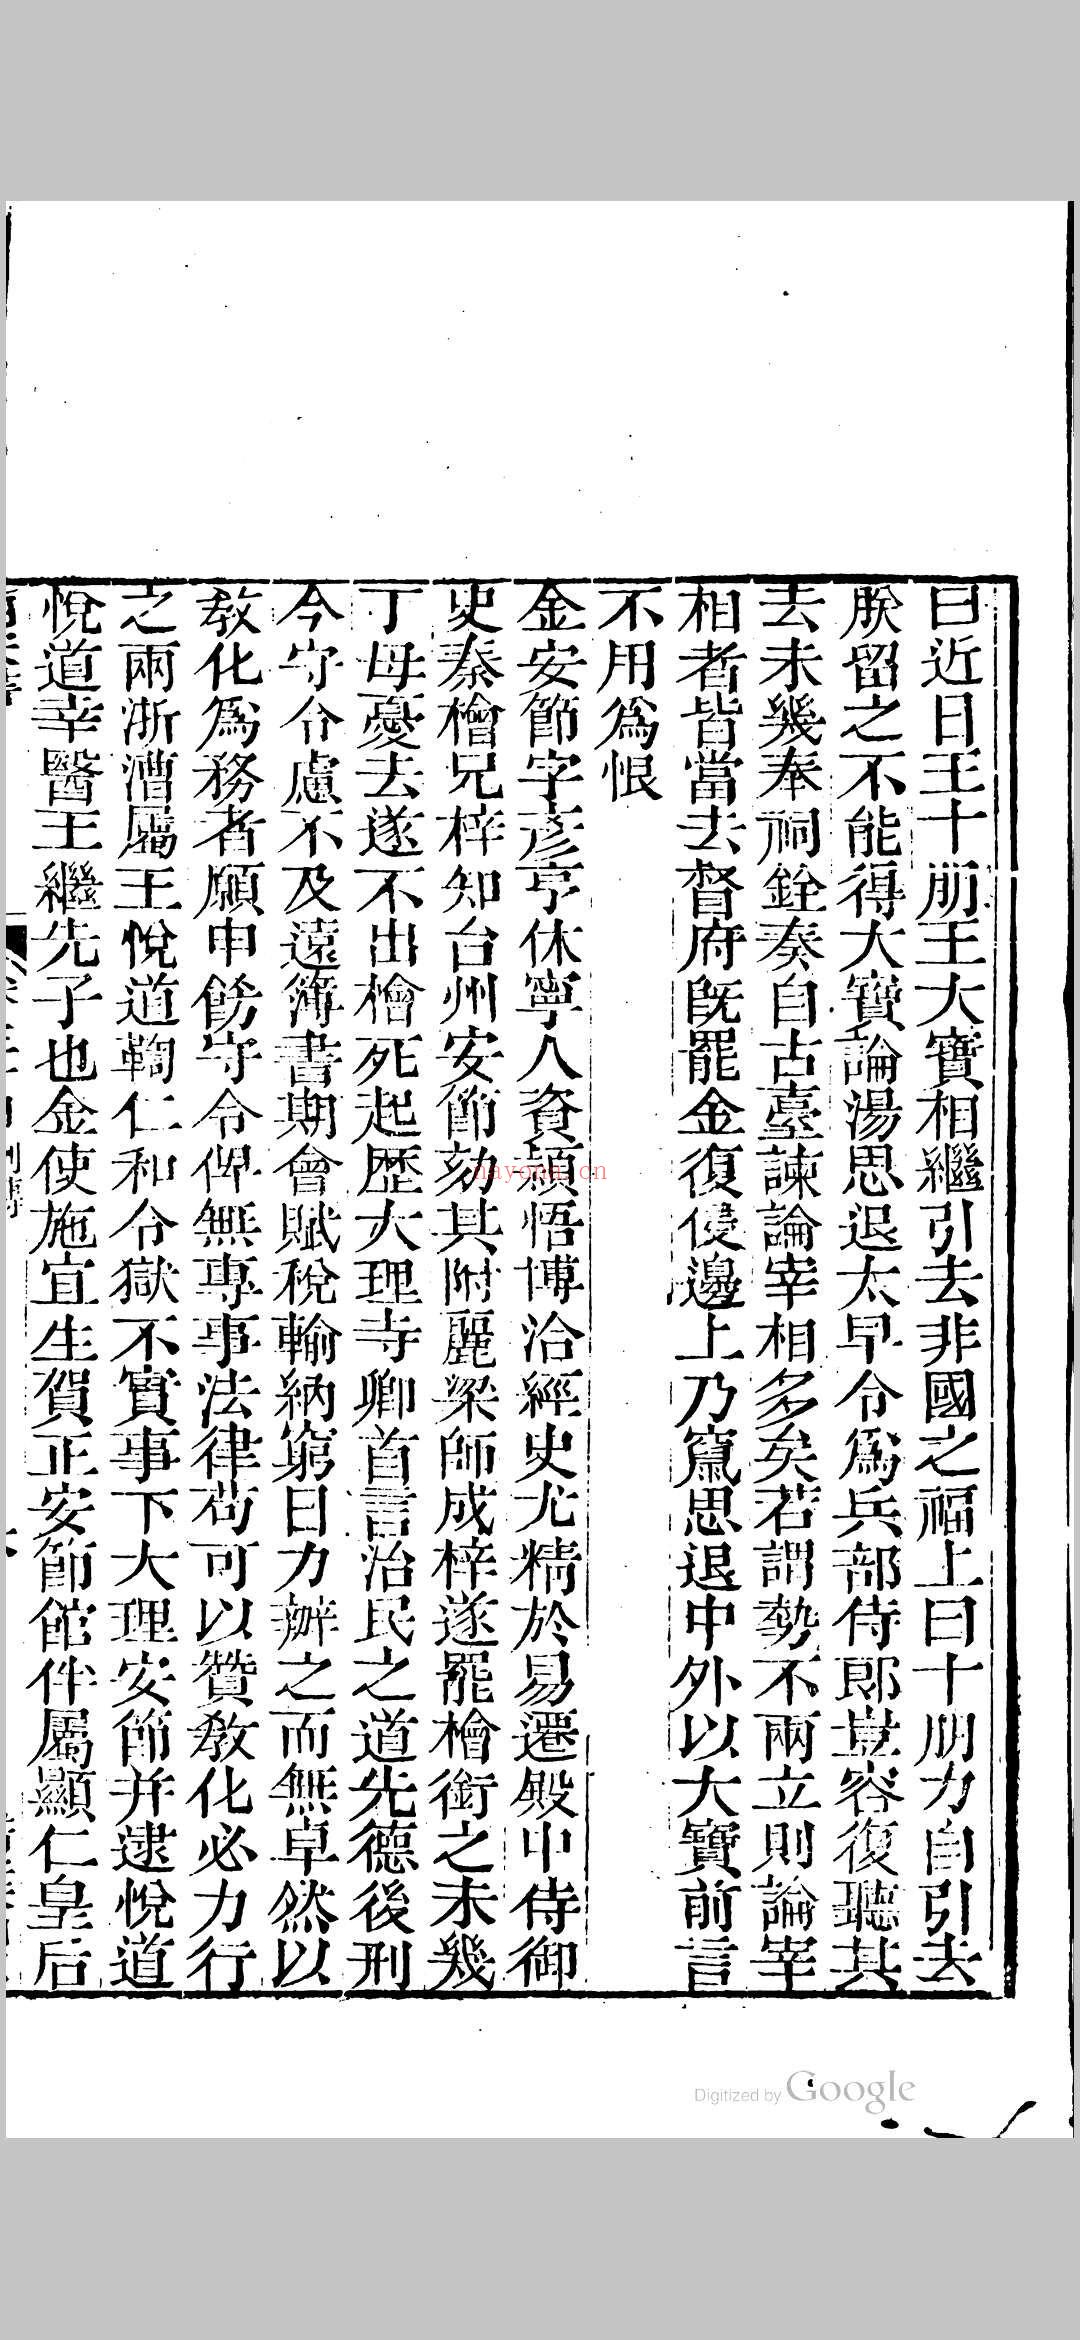 曰近日王十朋王大寶相繼引去非國之福上曰十朋力自引去
朕留之不能得大寶論湯思退太早令爲兵部侍郎豈容復聽其
去未幾奉祠銓奏自古臺諫論宰相多矣若謂勢不兩立則論宰
相者皆當去督府既罷金復侵邊上乃竄思退中外以大寶前言
不用爲恨
金安節字彥亨休寧人資穎悟博洽經史尤精於易遷殿中侍御
史秦檜兄梓知台州安節劾其附麗梁師成梓遂罷檜銜之未幾
丁母憂去遂不出檜死起歷大理寺卿首言治民之道先德後刑
今守令慮不及遠簿書期會賦稅輸納窮日力辦之而無卓然以
教化爲務者願申飭守令俾無專事法律苟可以贊教化必力行
之兩浙漕屬王悅道鞫仁和令獄不實事下大理安節并逮悅道
悅道幸醫王繼先子也金使施宜生賀正安節館伴屬顯仁皇后
nayona.cn
Digitized by Google